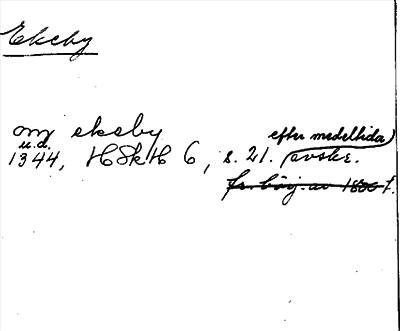 Ekeby
om ekeby
u.d. efter medeltida
1344, HSkH 6, s. 21. avskr.
fr. börj. av 1800-t.